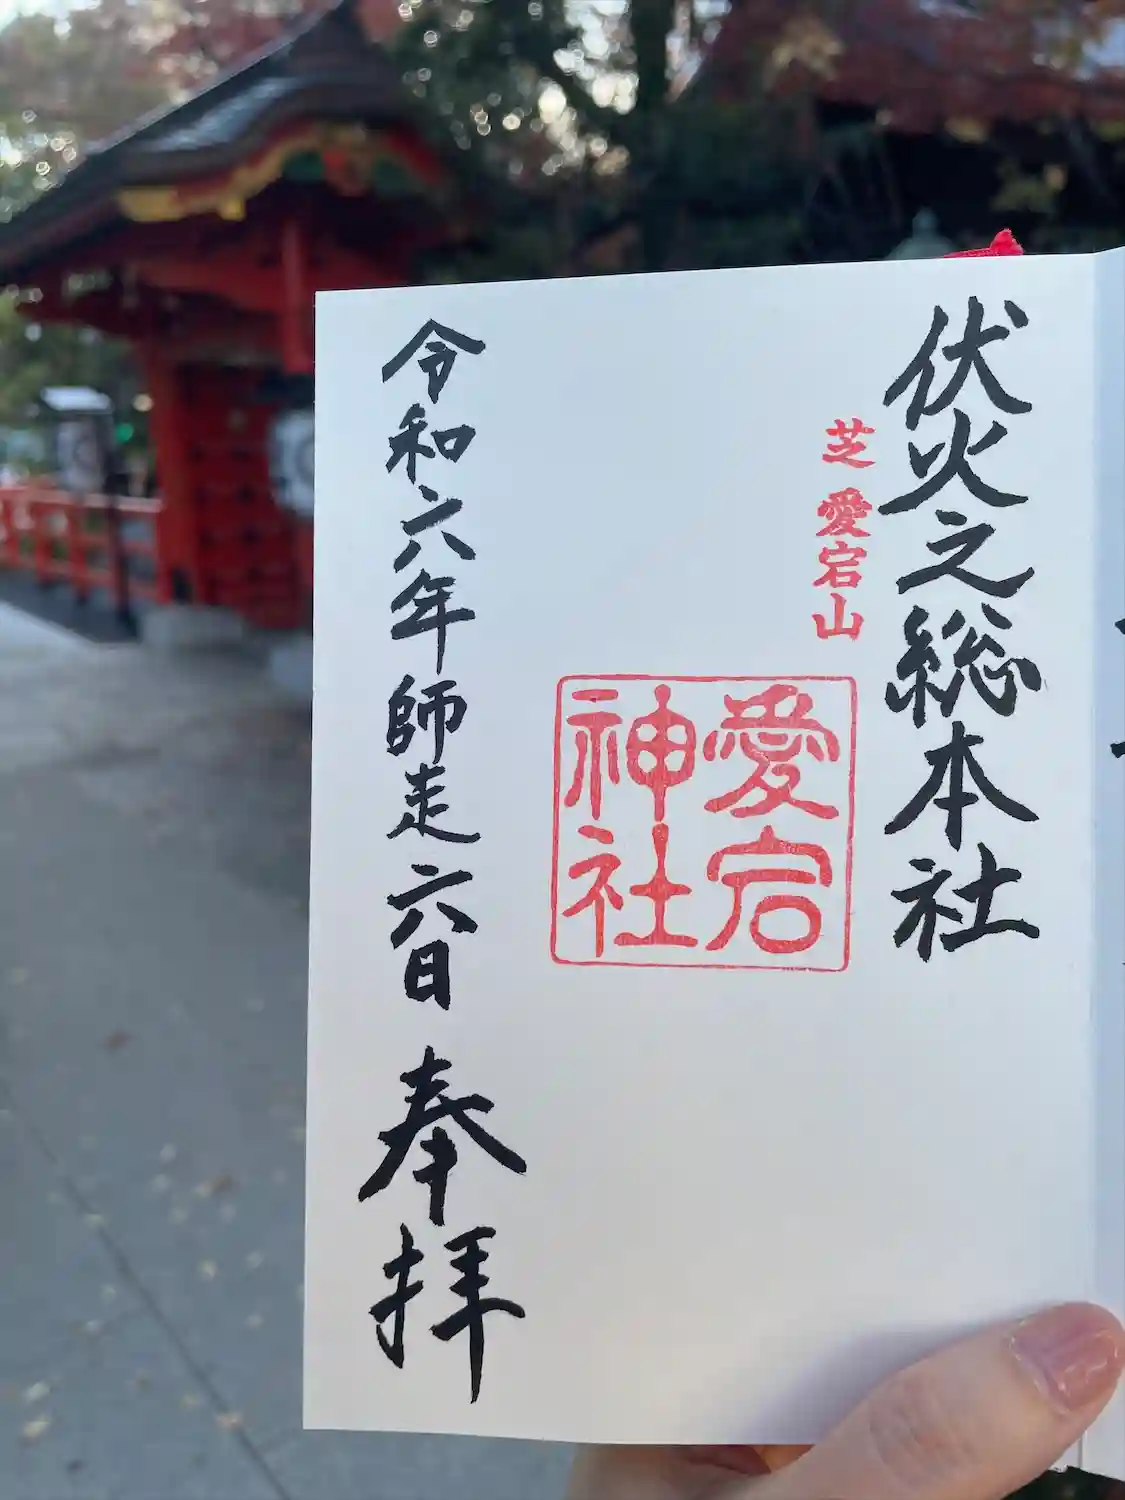 伏火之総本社
芝 愛宕山
愛宕
神社
令和六年師走六日 奉拝